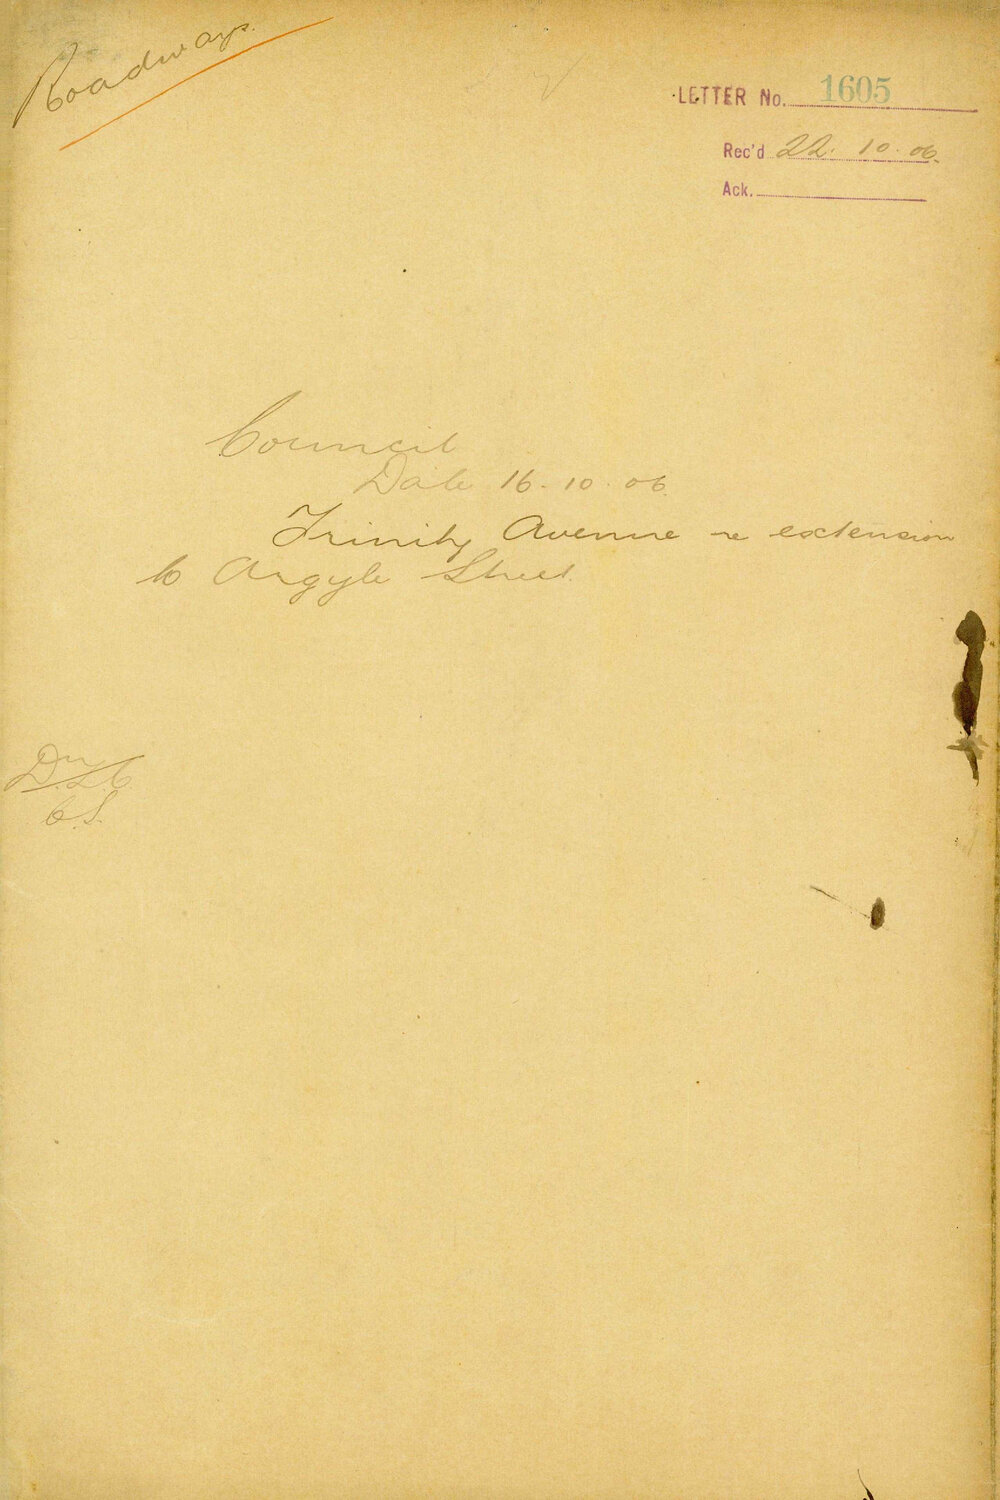 Roadways.
LETTER No. 1605
Rec'd 22. 10. 06.
Ack.
Council
Date 16. 10. 06.
Trinity Avenue re extension
to Argyle Street.
C.S.